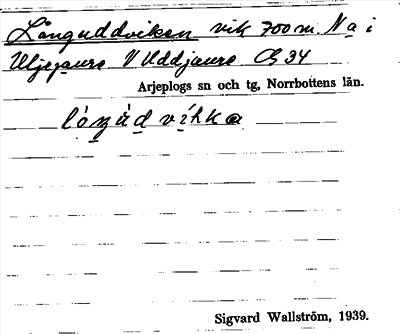 Långuddviken vik 700 m. N a i
Uljejaure V Uddjaure Cg 34
Arjeplogs sn och tg, Norrbottens län.
vihka
Sigvard Wallström, 1939.